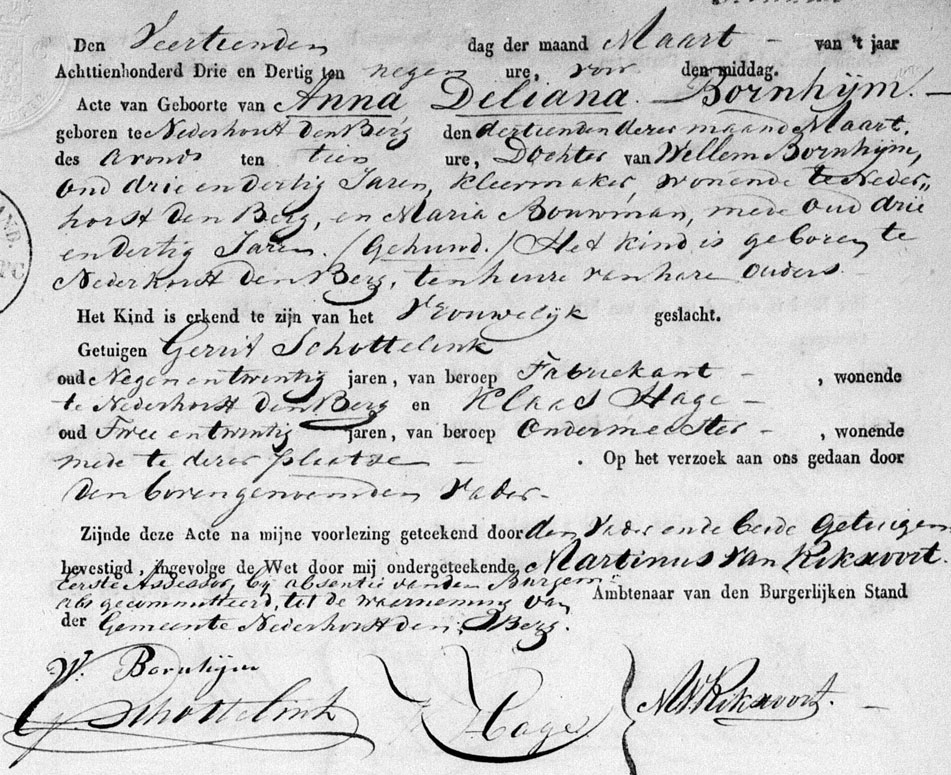 Den Veertienden dag der maand Maart - van 't jaar
Achttienhonderd Drie en Dertig ten negen ure, voor den middag.
Acte van Geboorte van Anna Deliana. Bornhijm. -
geboren te Nederhorst den Berg den dertienden dezer maand Maart,
des avonds ten tien ure, Dochter van Wellem Bornhijm,
oud drie en dertig Jaren, kleermaker, wonende te Neder„
horst den Berg, en Maria Bouwman, mede oud drie
en dertig Jaren. (Gehuwd.) Het kind is geboren te
Nederhorst den Berg, ten huize van hare Ouders.
Het Kind is erkend te zijn van het Vrouwelijk geslacht.
Getuigen Gerrit Schottelink
oud Negen en twintig jaren, van beroep Fabriekant - , wonende
te Nederhorst den Berg en Klaas Hage -
oud Twee en twintig jaren, van beroep Ondermeester - , wonende
mede te dezer plaatse - . Op het verzoek aan ons gedaan door
den bovengenoemden Vader -
Zijnde deze Acte na mijne voorlezing geteekend door den Vader en de beide Getuigen
bevestigd, ingevolge de Wet door mij ondergeteekende, Martinus van Rikxoort.
Eerste Assessor, bij absentie van den Burgem:
als gecommitteerd, tot de waarneming van Ambtenaar van den Burgerlijken Stand
der Gemeente Nederhorst den Berg.
W. Bornhijm
G. Schottelink
K Hage
M V Rikxoort. -